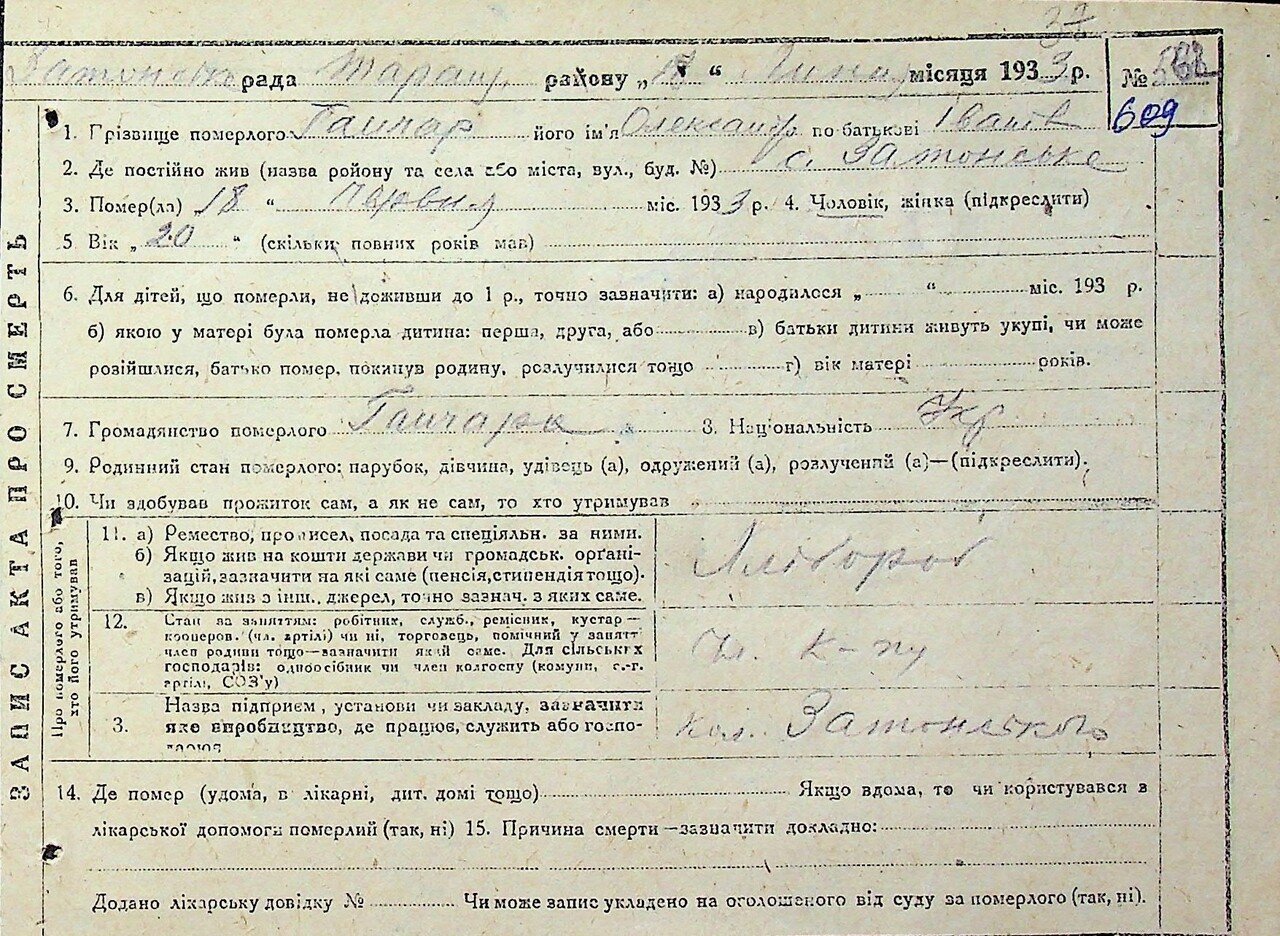 37
Затонськ рада Таращ. району „18“ Липня місяця 1933 р. № 568
609
1. Грізвище померлого Ганчар його ім'я Олександр по батькові Іванов
2. Де постійно жив (назва ройону та села або міста, вул., буд. №) с. Затонське
3. Помер(ла) „18“ червня міс. 1933 р. 4. Чоловік, жінка (підкреслити)
5 Вік „20“ (скільки повних років мав)
6. Для дітей, що померли, не доживши до 1 р., точно зазначити: а) народилося „ “ міс. 193 р.
б) якою у матері була померла дитина: перша, друга, або в) батьки дитини живуть укупі, чи може
розійшлися, батько помер, покинув родину, розлучилися тощо г) вік матері років.
7. Громадянство померлого Ганчара 8. Національність Укр
9. Родинний стан померлого: парубок, дівчина, удівець (а), одружений (а), розлучений (а)—(підкреслити).
10. Чи здобував прожиток сам, а як не сам, то хто утримував
ЗАПИС АКТА ПРО СМЕРТЬ
Про померлого або того,
хто його утримував
11. а) Ремество, промисел, посада та спеціяльн. за ними.
б) Якщо жив на кошти держави чи громадськ. орґані-
зацій, зазначити на які саме (пенсія, стипендія тощо).
в) Якщо жив з інш. джерел, точно зазнач. з яких саме.
Хлібороб
12. Стан за заняттям: робітник, служб., ремісник, кустар—
кооперов. (чл. артілі) чи ні, торговець, помічний у занятті
член родини тощо—зазначити який саме. Для сільських
господарів: одноосібник чи член колгоспу (комуни, с.-г.
артілі, СОЗ'у)
Чл. к-пу
3. Назва підприєм., установи чи закладу, зазначити
яке виробництво, де працює, служить або госпо-
дарює
кол. Затонського
14. Де помер (удома, в лікарні, дит. домі тощо) Якщо вдома, то чи користувався з
лікарської допомоги померлий (так, ні) 15. Причина смерти—зазначити докладно:
Додано лікарську довідку № Чи може запис укладено на оголошеного від суду за померлого (так, ні).